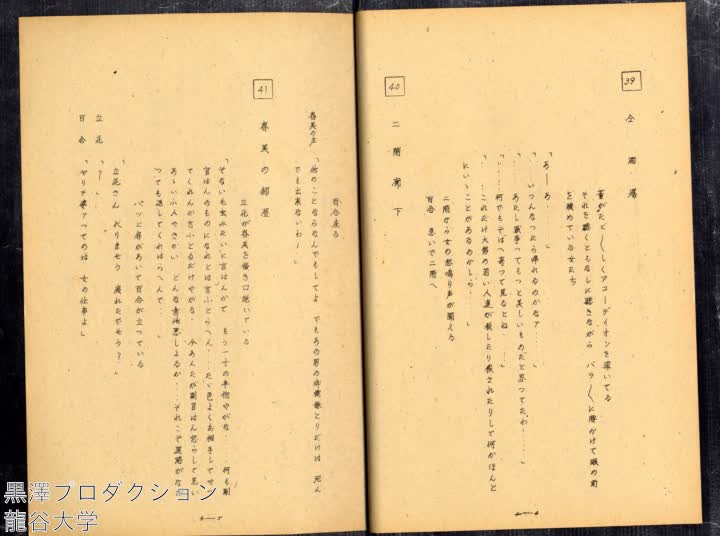 39 仝 酒 場
菫がたど〱しくアコーデイオンを弾いてる
それを聴くともなしに聴きながら バラ〱に腰かけて眼の前
を眺めている女たち
「あーあ。」
「いつんなつたら帰れるのかなア……」
「あたし戦争つてもつと美しいものだと思つてたわ……」
「何でもそばへ寄つて見るとね……」
「……これだけ大勢の若い人達が殺したり殺されたりして何かほんと
にいゝことがあるのかしら……」
40 二 階 廊 下
二階から女の怒鳴り声が聞える
百合 急いで二階へ
百合来る
春美の声「他のことならなんでもしてよ でもあの男の御機嫌とりだけは 死ん
でも出来ないわー」
41 春 美 の 部 屋
立花が春美を掻き口説いている
「そない毛虫みたいに言はんかて もう一寸の辛抱やがな…何も副
官はんのものになれとは言ふとらへん…たゞ色よくお相手してや
てくれんか言ふとるだけやがな 今あんたが副官はん怒らして見い
あゝいふ人やさかい どんな意地悪しよるか…それこそ
つても通してくれはらへんで…」
パツと扉があいて百合が立つている
「立花さん 代りませう 疲れたでせう?」
立花「?」
百合「ヤリテ婆アつてのは 女の仕事よ」
4—5
4—4
黒澤プロダクション
龍谷大学